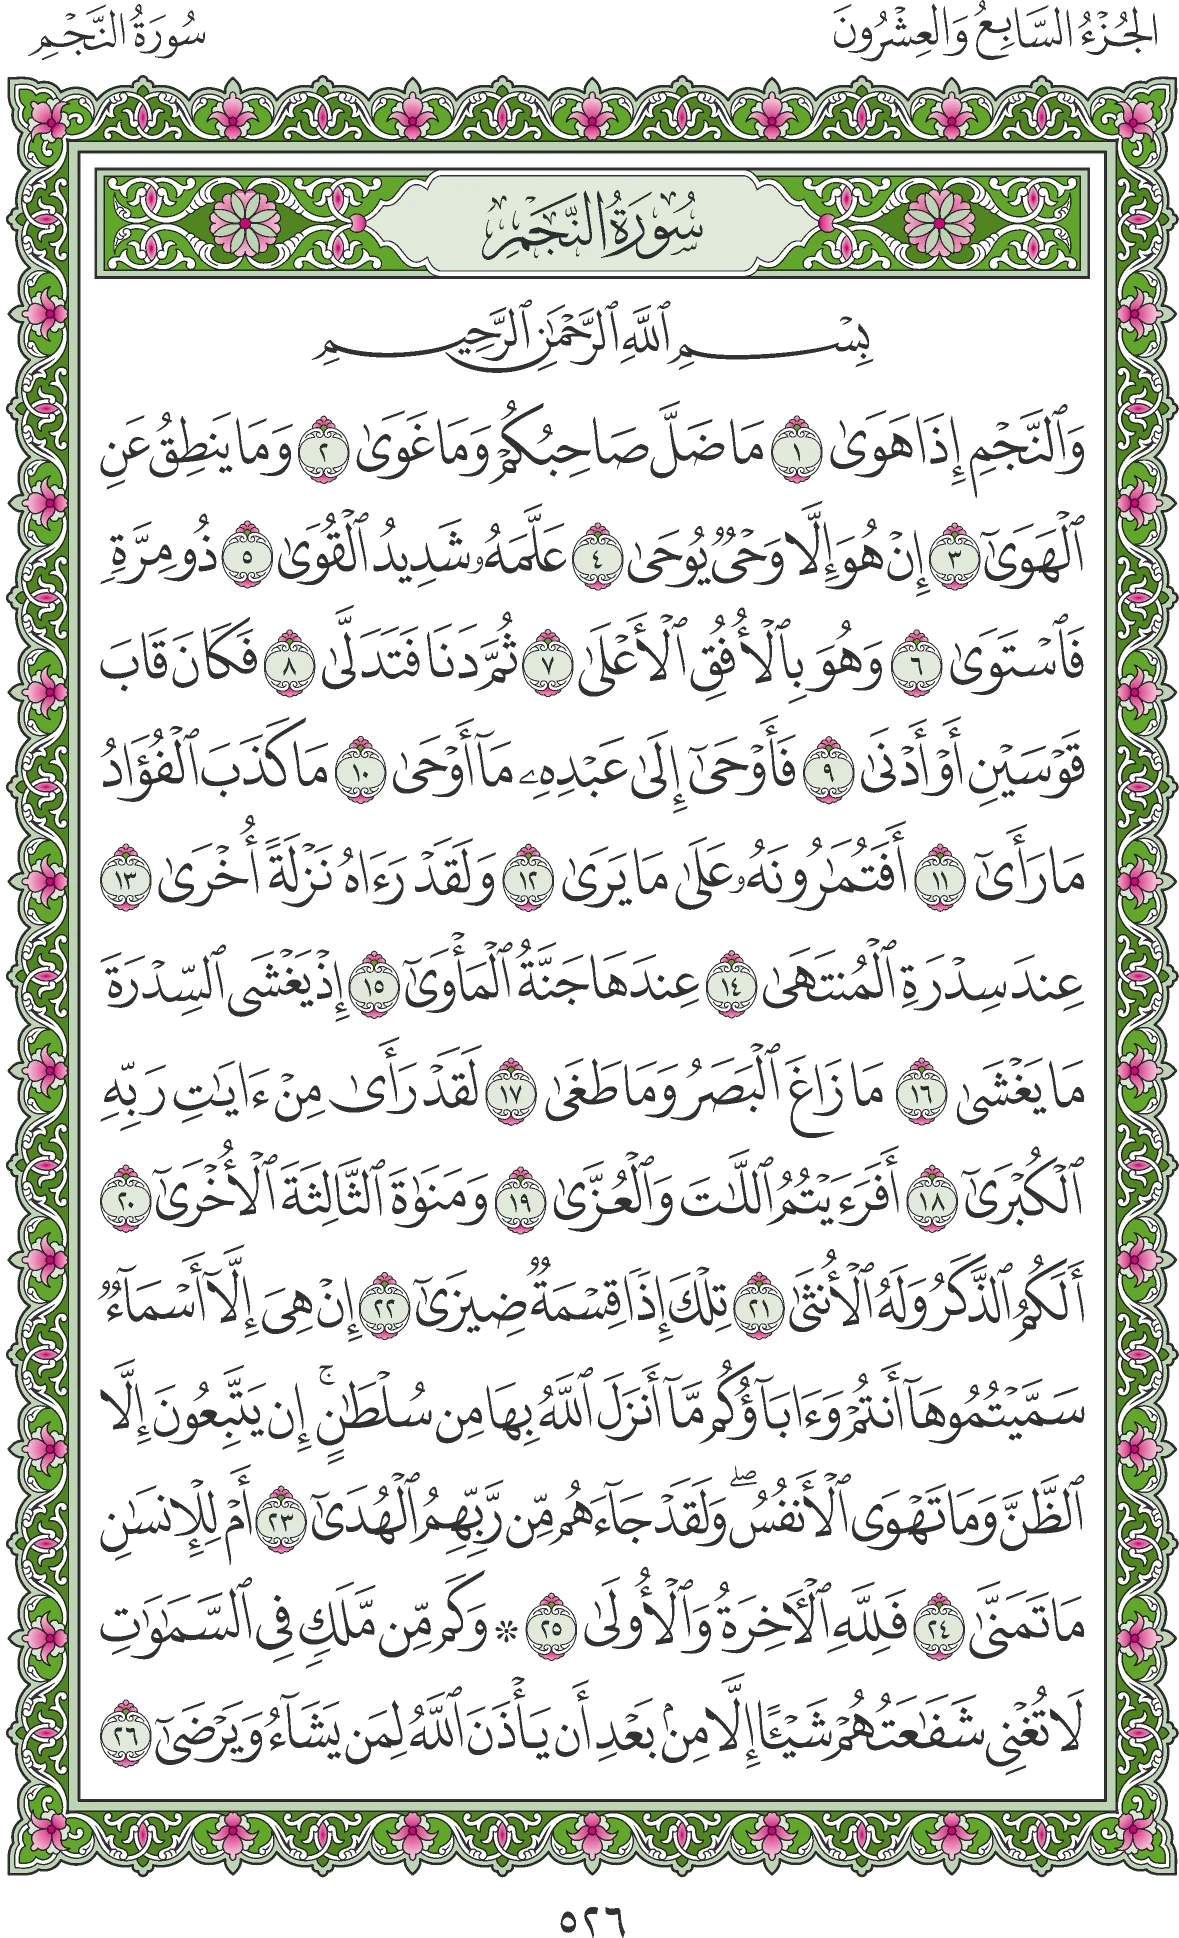 الجُزْءُ السَّابِعُ وَالعِشْرُونَ
سُورَةُ النَّجْمِ
سُورَةُ النَّجْمِ
بِسْمِ ٱللَّهِ ٱلرَّحْمَٰنِ ٱلرَّحِيمِ
وَٱلنَّجْمِ إِذَا هَوَىٰ ١ مَا ضَلَّ صَاحِبُكُمْ وَمَا غَوَىٰ ٢ وَمَا يَنطِقُ عَنِ
ٱلْهَوَىٰٓ ٣ إِنْ هُوَ إِلَّا وَحْىٌ يُوحَىٰ ٤ عَلَّمَهُۥ شَدِيدُ ٱلْقُوَىٰ ٥ ذُو مِرَّةٍ
فَٱسْتَوَىٰ ٦ وَهُوَ بِٱلْأُفُقِ ٱلْأَعْلَىٰ ٧ ثُمَّ دَنَا فَتَدَلَّىٰ ٨ فَكَانَ قَابَ
قَوْسَيْنِ أَوْ أَدْنَىٰ ٩ فَأَوْحَىٰٓ إِلَىٰ عَبْدِهِۦ مَآ أَوْحَىٰ ١٠ مَا كَذَبَ ٱلْفُؤَادُ
مَا رَأَىٰٓ ١١ أَفَتُمَٰرُونَهُۥ عَلَىٰ مَا يَرَىٰ ١٢ وَلَقَدْ رَءَاهُ نَزْلَةً أُخْرَىٰ ١٣
عِندَ سِدْرَةِ ٱلْمُنتَهَىٰ ١٤ عِندَهَا جَنَّةُ ٱلْمَأْوَىٰٓ ١٥ إِذْ يَغْشَى ٱلسِّدْرَةَ
مَا يَغْشَىٰ ١٦ مَا زَاغَ ٱلْبَصَرُ وَمَا طَغَىٰ ١٧ لَقَدْ رَأَىٰ مِنْ ءَايَٰتِ رَبِّهِ
ٱلْكُبْرَىٰٓ ١٨ أَفَرَءَيْتُمُ ٱللَّٰتَ وَٱلْعُزَّىٰ ١٩ وَمَنَوٰةَ ٱلثَّالِثَةَ ٱلْأُخْرَىٰٓ ٢٠
أَلَكُمُ ٱلذَّكَرُ وَلَهُ ٱلْأُنثَىٰ ٢١ تِلْكَ إِذًا قِسْمَةٌ ضِيزَىٰٓ ٢٢ إِنْ هِىَ إِلَّآ أَسْمَآءٌ
سَمَّيْتُمُوهَآ أَنتُمْ وَءَابَآؤُكُم مَّآ أَنزَلَ ٱللَّهُ بِهَا مِن سُلْطَٰنٍ ۚ إِن يَتَّبِعُونَ إِلَّا
ٱلظَّنَّ وَمَا تَهْوَى ٱلْأَنفُسُ ۖ وَلَقَدْ جَآءَهُم مِّن رَّبِّهِمُ ٱلْهُدَىٰٓ ٢٣ أَمْ لِلْإِنسَٰنِ
مَا تَمَنَّىٰ ٢٤ فَلِلَّهِ ٱلْءَاخِرَةُ وَٱلْأُولَىٰ ٢٥ * وَكَم مِّن مَّلَكٍ فِى ٱلسَّمَٰوَٰتِ
لَا تُغْنِى شَفَٰعَتُهُمْ شَيْـًٔا إِلَّا مِنۢ بَعْدِ أَن يَأْذَنَ ٱللَّهُ لِمَن يَشَآءُ وَيَرْضَىٰٓ ٢٦
٥٢٦